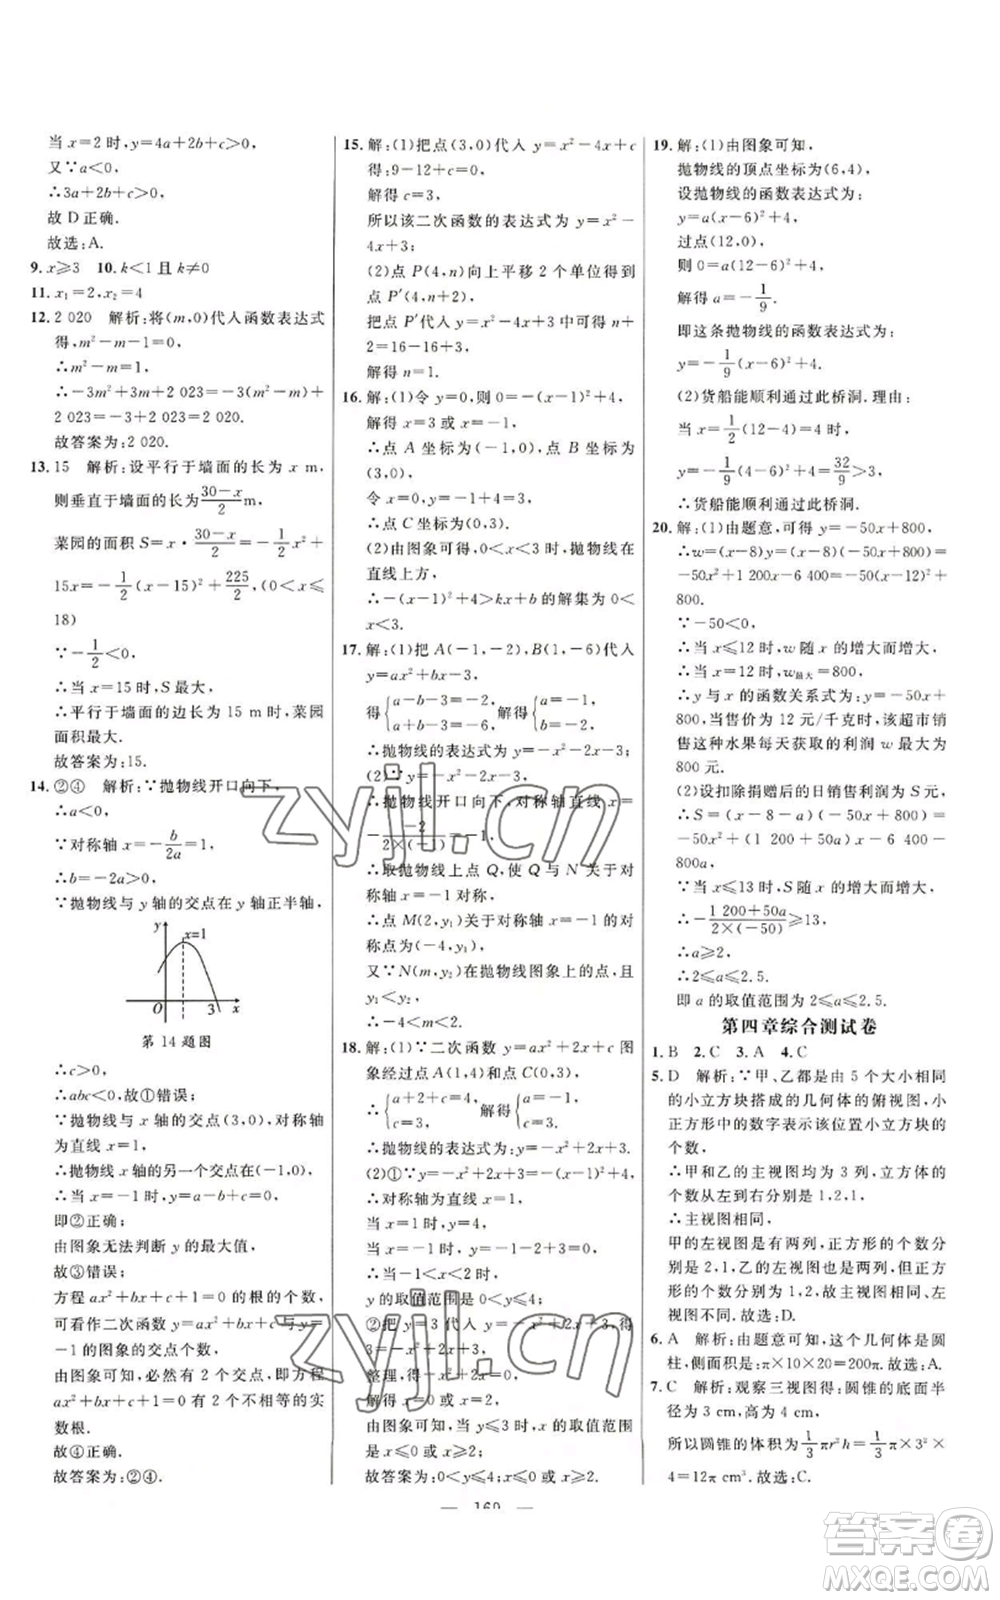 当 x=2 时,y=4a+2b+c>0,
又∵a<0,
∴3a+2b+c>0,
故 D 正确.
故选:A.
9. x≥3  10. k<1 且 k≠0
11. x₁=2,x₂=4
12. 2 020  解析:将(m,0)代入函数表达式
得,m²-m-1=0,
∴m²-m=1,
∴-3m²+3m+2 023=-3(m²-m)+
2 023=-3+2 023=2 020.
故答案为:2 020.
13. 15  解析:设平行于墙面的长为 x m,
则垂直于墙面的长为(30-x)/2 m,
菜园的面积 S=x·(30-x)/2=-1/2x²+
15x=-1/2(x-15)²+225/2,(0<x≤
18)
∵-1/2<0,
∴当 x=15 时,S 最大.
∴平行于墙面的边长为 15 m 时,菜园
面积最大.
故答案为:15.
14. ②④  解析:∵抛物线开口向下,
∴a<0,
∵对称轴 x=-b/2a=1,
∴b=-2a>0,
∵抛物线与 y 轴的交点在 y 轴正半轴,
y x=1
O 3 x
第 14 题图
∴c>0,
∴abc<0,故①错误;
∵抛物线与 x 轴的交点(3,0),对称轴
为直线 x=1,
∴抛物线 x 轴的另一个交点在(-1,0),
∴当 x=-1 时,y=a-b+c=0,
即②正确;
由图象无法判断 y 的最大值,
故③错误;
方程 ax²+bx+c+1=0 的根的个数,
可看作二次函数 y=ax²+bx+c 与 y=
-1 的图象的交点个数,
由图象可知,必然有 2 个交点,即方程
ax²+bx+c+1=0 有 2 个不相等的实
数根.
故④正确.
故答案为:②④.
15. 解:(1)把点(3,0)代入 y=x²-4x+c
得:9-12+c=0,
解得 c=3,
所以该二次函数的表达式为 y=x²-
4x+3;
(2)点 P(4,n)向上平移 2 个单位得到
点 P′(4,n+2),
把点 P′代入 y=x²-4x+3 中可得 n+
2=16-16+3,
解得 n=1.
16. 解:(1)令 y=0,则 0=-(x-1)²+4,
解得 x=3 或 x=-1,
∴点 A 坐标为(-1,0),点 B 坐标为
(3,0),
令 x=0,y=3,
∴点 C 坐标为(0,3).
(2)由图象可得,0<x<3 时,抛物线在
直线上方,
∴-(x-1)²+4>kx+b 的解集为 0<
x<3.
17. 解:(1)把 A(-1,-2),B(1,-6)代入
y=ax²+bx-3,
得{a-b-3=-2, a+b-3=-6, 解得{a=-1, b=-2.
∴抛物线的表达式为 y=-x²-2x-3;
(2)∵抛物线的表达式为 y=-x²-2x-3,
∴抛物线开口向下,对称轴直线 x=
-(-2)/(2×(-1))=-1,
∴取抛物线上点 Q,使 Q 与 N 关于对
称轴 x=-1 对称,
∴点 M(2,y₁)关于对称轴 x=-1 的对
称点为(-4,y₁),
又∵N(m,y₂)在抛物线图象上的点,且
y₁<y₂,
∴-4<m<2.
18. 解:(1)∵二次函数 y=ax²+2x+c 图
象经过点 A(1,4)和点 C(0,3),
∴{a+2+c=4, c=3, 解得{a=-1, c=3,
∴抛物线的表达式为:y=-x²+2x+3;
(2)①∵y=-x²+2x+3=-(x-1)²+4,
∴对称轴为直线 x=1,
当 x=1 时,y=4,
当 x=-1 时,y=-1-2+3=0,
∴当-1<x<2 时,
y 的取值范围是 0<y≤4;
②把 y=3 代入 y=-x²+2x+3,得
3=-x²+2x+3,
整理,得-x²+2x=0,
解得 x=0 或 x=2,
由图象可知,当 y≤3 时,x 的取值范围
是 x≤0 或 x≥2,
故答案为:0<y≤4;x≤0 或 x≥2.
19. 解:(1)由图象可知,
抛物线的顶点坐标为(6,4),
设抛物线的函数表达式为:
y=a(x-6)²+4,
过点(12,0),
则 0=a(12-6)²+4,
解得 a=-1/9.
即这条抛物线的函数表达式为:
y=-1/9(x-6)²+4.
(2)货船能顺利通过此桥洞.理由:
当 x=1/2(12-4)=4 时,
y=-1/9(4-6)²+4=32/9>3,
∴货船能顺利通过此桥洞.
20. 解:(1)由题意,可得 y=-50x+800,
∴w=(x-8)y=(x-8)(-50x+800)=
-50x²+1 200x-6 400=-50(x-12)²+
800,
∵-50<0,
∴当 x≤12 时,w 随 x 的增大而增大,
∴当 x=12 时,w最大=800,
∴y 与 x 的函数关系式为 y=-50x+
800,当售价为 12 元/千克时,该超市销
售这种水果每天获取的利润 w 最大为
800 元.
(2)设扣除捐赠后的日销售利润为 S 元,
∴S=(x-8-a)(-50x+800)=
-50x²+(1 200+50a)x-6 400-
800a,
∵当 x≤13 时,S 随 x 的增大而增大,
∴-(1 200+50a)/(2×(-50))≥13,
∴a≥2,
∴2≤a≤2.5,
即 a 的取值范围为 2≤a≤2.5.
第四章综合测试卷
1. B  2. C  3. A  4. C
5. D  解析:∵甲、乙都是由 5 个大小相同
的小立方块搭成的几何体的俯视图,小
正方形中的数字表示该位置小立方块的
个数,
∴甲和乙的主视图均为 3 列,立方体的
个数从左到右分别是 1,2,1,
∴主视图相同,
甲的左视图是有两列,正方形的个数分
别是 2,1,乙的左视图也是两列,但正方
形的个数分别为 1,2,故主视图相同、左
视图不同.故选:D.
6. A  解析:由题意可知,这个几何体是圆
柱,侧面积是:π×10×20=200π.故选:A.
7. C  解析:观察三视图得:圆锥的底面半
径为 3 cm,高为 4 cm,
所以圆锥的体积为1/3πr²h=1/3π×3²×
4=12π cm³.故选:C.
— 169 —
zyjl.cn
zyjl.cn
答案圈
MXQE.COM